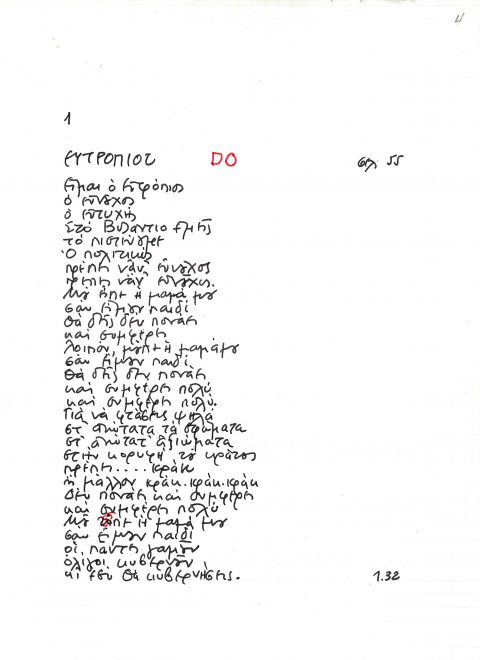 4
1
ΕΥΤΡΟΠΙΟΣ DO σελ 55
Εἶμαι ὁ Εὐτρόπιος
ὁ εὐνοῦχος
ὁ εὐτυχής
Στό Βυζάντιο ἐμεῖς
τό πιστεύαμε
Ὁ πολιτικός
πρέπει νἆναι εὐνοῦχος
πρέπει νἆναι εὐνοῦχος.
Μοῦ εἶπε ἡ μαμά μου
σάν ἤμουν παιδί
Θά δεῖς δέν πονάει
καί συμφέρει
λοιπόν, μοῦπε ἡ μαμά μου
σάν ἤμουν παιδί
Θά δεῖς δέν πονάει
καί συμφέρει πολύ
καί συμφέρει πολύ.
Γιά νά φτάσεις ψηλά
στ' ἀνώτατα τά στρώματα
στ' ἀνώτατ' ἀξιώματα
στήν κορυφή τοῦ κράτους
πρέπει.... κράκ
ἤ μᾶλλον κράκ.κράκ.κράκ
Δέν πονάει καί συμφέρει
καί συμφέρει πολύ
Μοῦ εἶπε ἡ μαμά μου
σάν ἤμουν παιδί
οἱ πάντες
ὀλίγοι κυβερνοῦν
κι ἐσύ θά κυβερνήσεις.
1.32